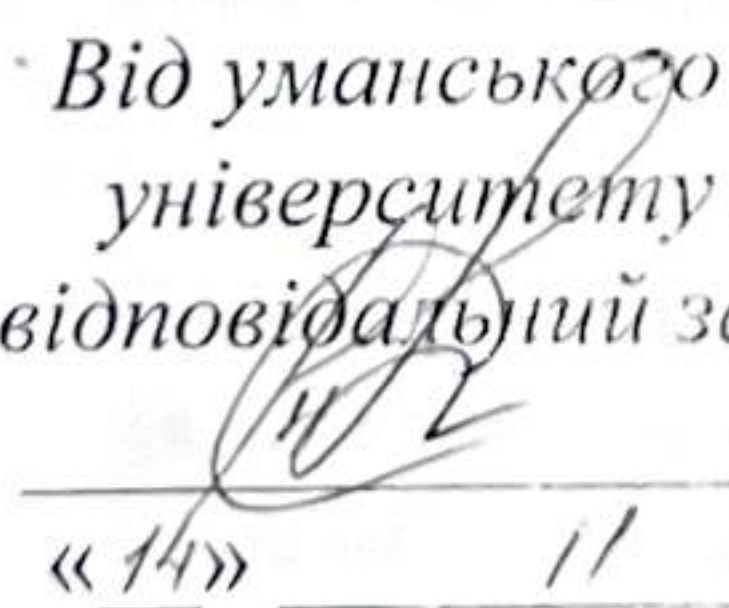 Від уманського
університету
відповідальний
«14» 11